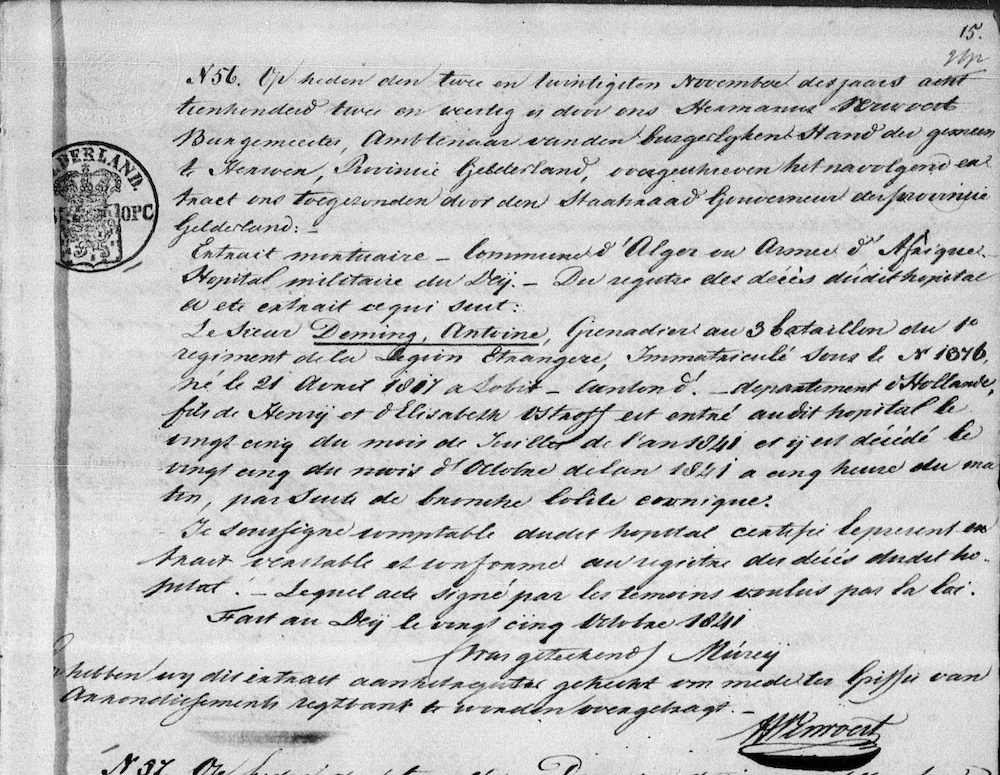 15.
N 56. Op heden den twee en twintigsten November des jaars acht
tienhonderd twee en veertig is door ons Hermannus
Burgemeester, Ambtenaar van den burgerlyken Stand der gemeen
te Herwen, Provincie Gelderland, overgeschreven het navolgend ex
tract ons toegezonden door den Staatsraad Gouverneur der provincie
Gelderland:-
Extrait mortuaire - Commune d'Alger ou Armee d'Afrique.
Hopital militaire du Deij. - Du registre des décès dudit hopital
a ete extrait ce qui suit:
Le Sieur Deming, Antoine, Grenadier au 3 bataillon du 1e
regiment de la Legion Etrangeré, Immatriculé sous le N 1376,
né le 21 Avril 1817 a Lobit - Canton d'. - departement d'Hollande,
fils de Henrij et d'Elisabeth est entré audit hopital le
vingt cinq du mois de Juillet de l'an 1841 et ij est décédé le
vingt cinq du mois d'Octobre de lan 1841 a cinq heure du ma
tin, par Suite de bronche Colite
Je Soussigne comptable dudit hopital certifie le present ex
trait veritable et conforme au registre des décès dudit ho-
pital. - Lequel acte signé par les temoins voulus par la loi.
Fait au Deij le vingt cinq Octobre 1841
(was geteekend)
hebben wy dit extract aan het register gehecht om mede ter Griffie van
Arrondissements regtbank te worden overgebragt. -
N 57. Op
DERLAND.
OPC